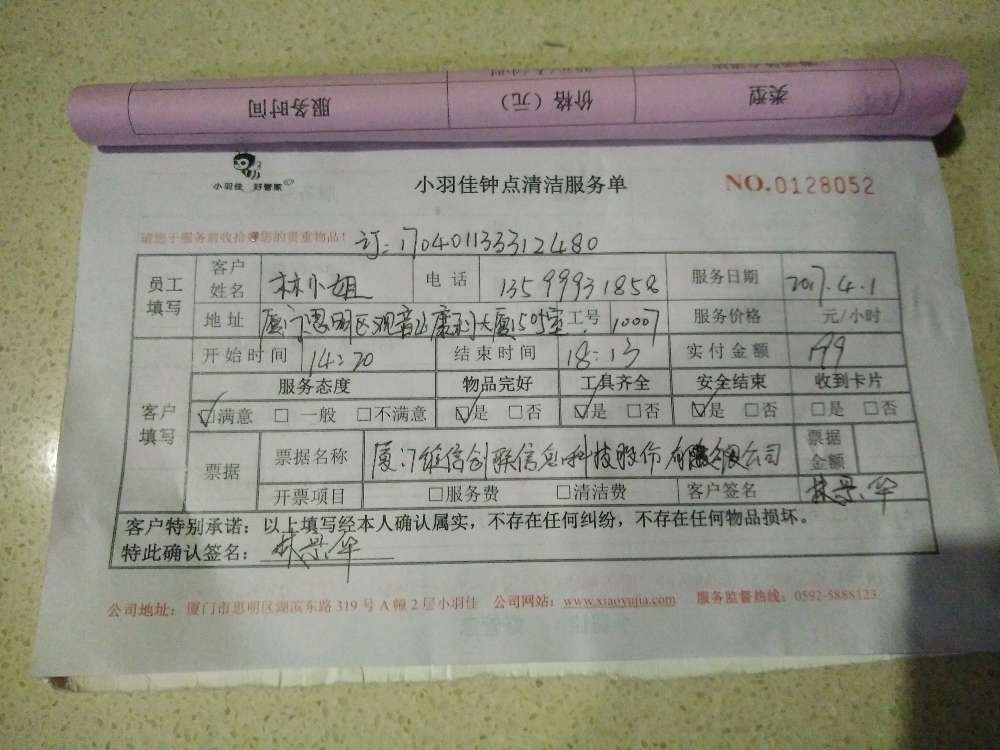 服务时间 价格（元） 类型
小羽佳 好管家
小羽佳钟点清洁服务单 NO.0128052
请您于服务前收拾好您的贵重物品！ 订：170401133312480
员工填写 客户姓名 林小姐 电话 13599931858 服务日期 2017.4.1
地址 厦门思明区观音山康利大厦1505室 工号 10007 服务价格 元/小时
开始时间 14:20 结束时间 18:13 实付金额 199
客户填写 服务态度 物品完好 工具齐全 安全结束 收到卡片
☑满意 □一般 □不满意 ☑是 □否 ☑是 □否 ☑是 □否 □是 □否
票据 票据名称 厦门 信创联信息科技股份有限公司 票据金额
开票项目 □服务费 □清洁费 客户签名 林 华
客户特别承诺：以上填写经本人确认属实，不存在任何纠纷，不存在任何物品损坏。
特此确认签名： 林 华
公司地址：厦门市思明区湖滨东路 319 号 A 幢 2 层小羽佳 公司网站：www.xiaoyujia.com 服务监督热线：0592-5888123